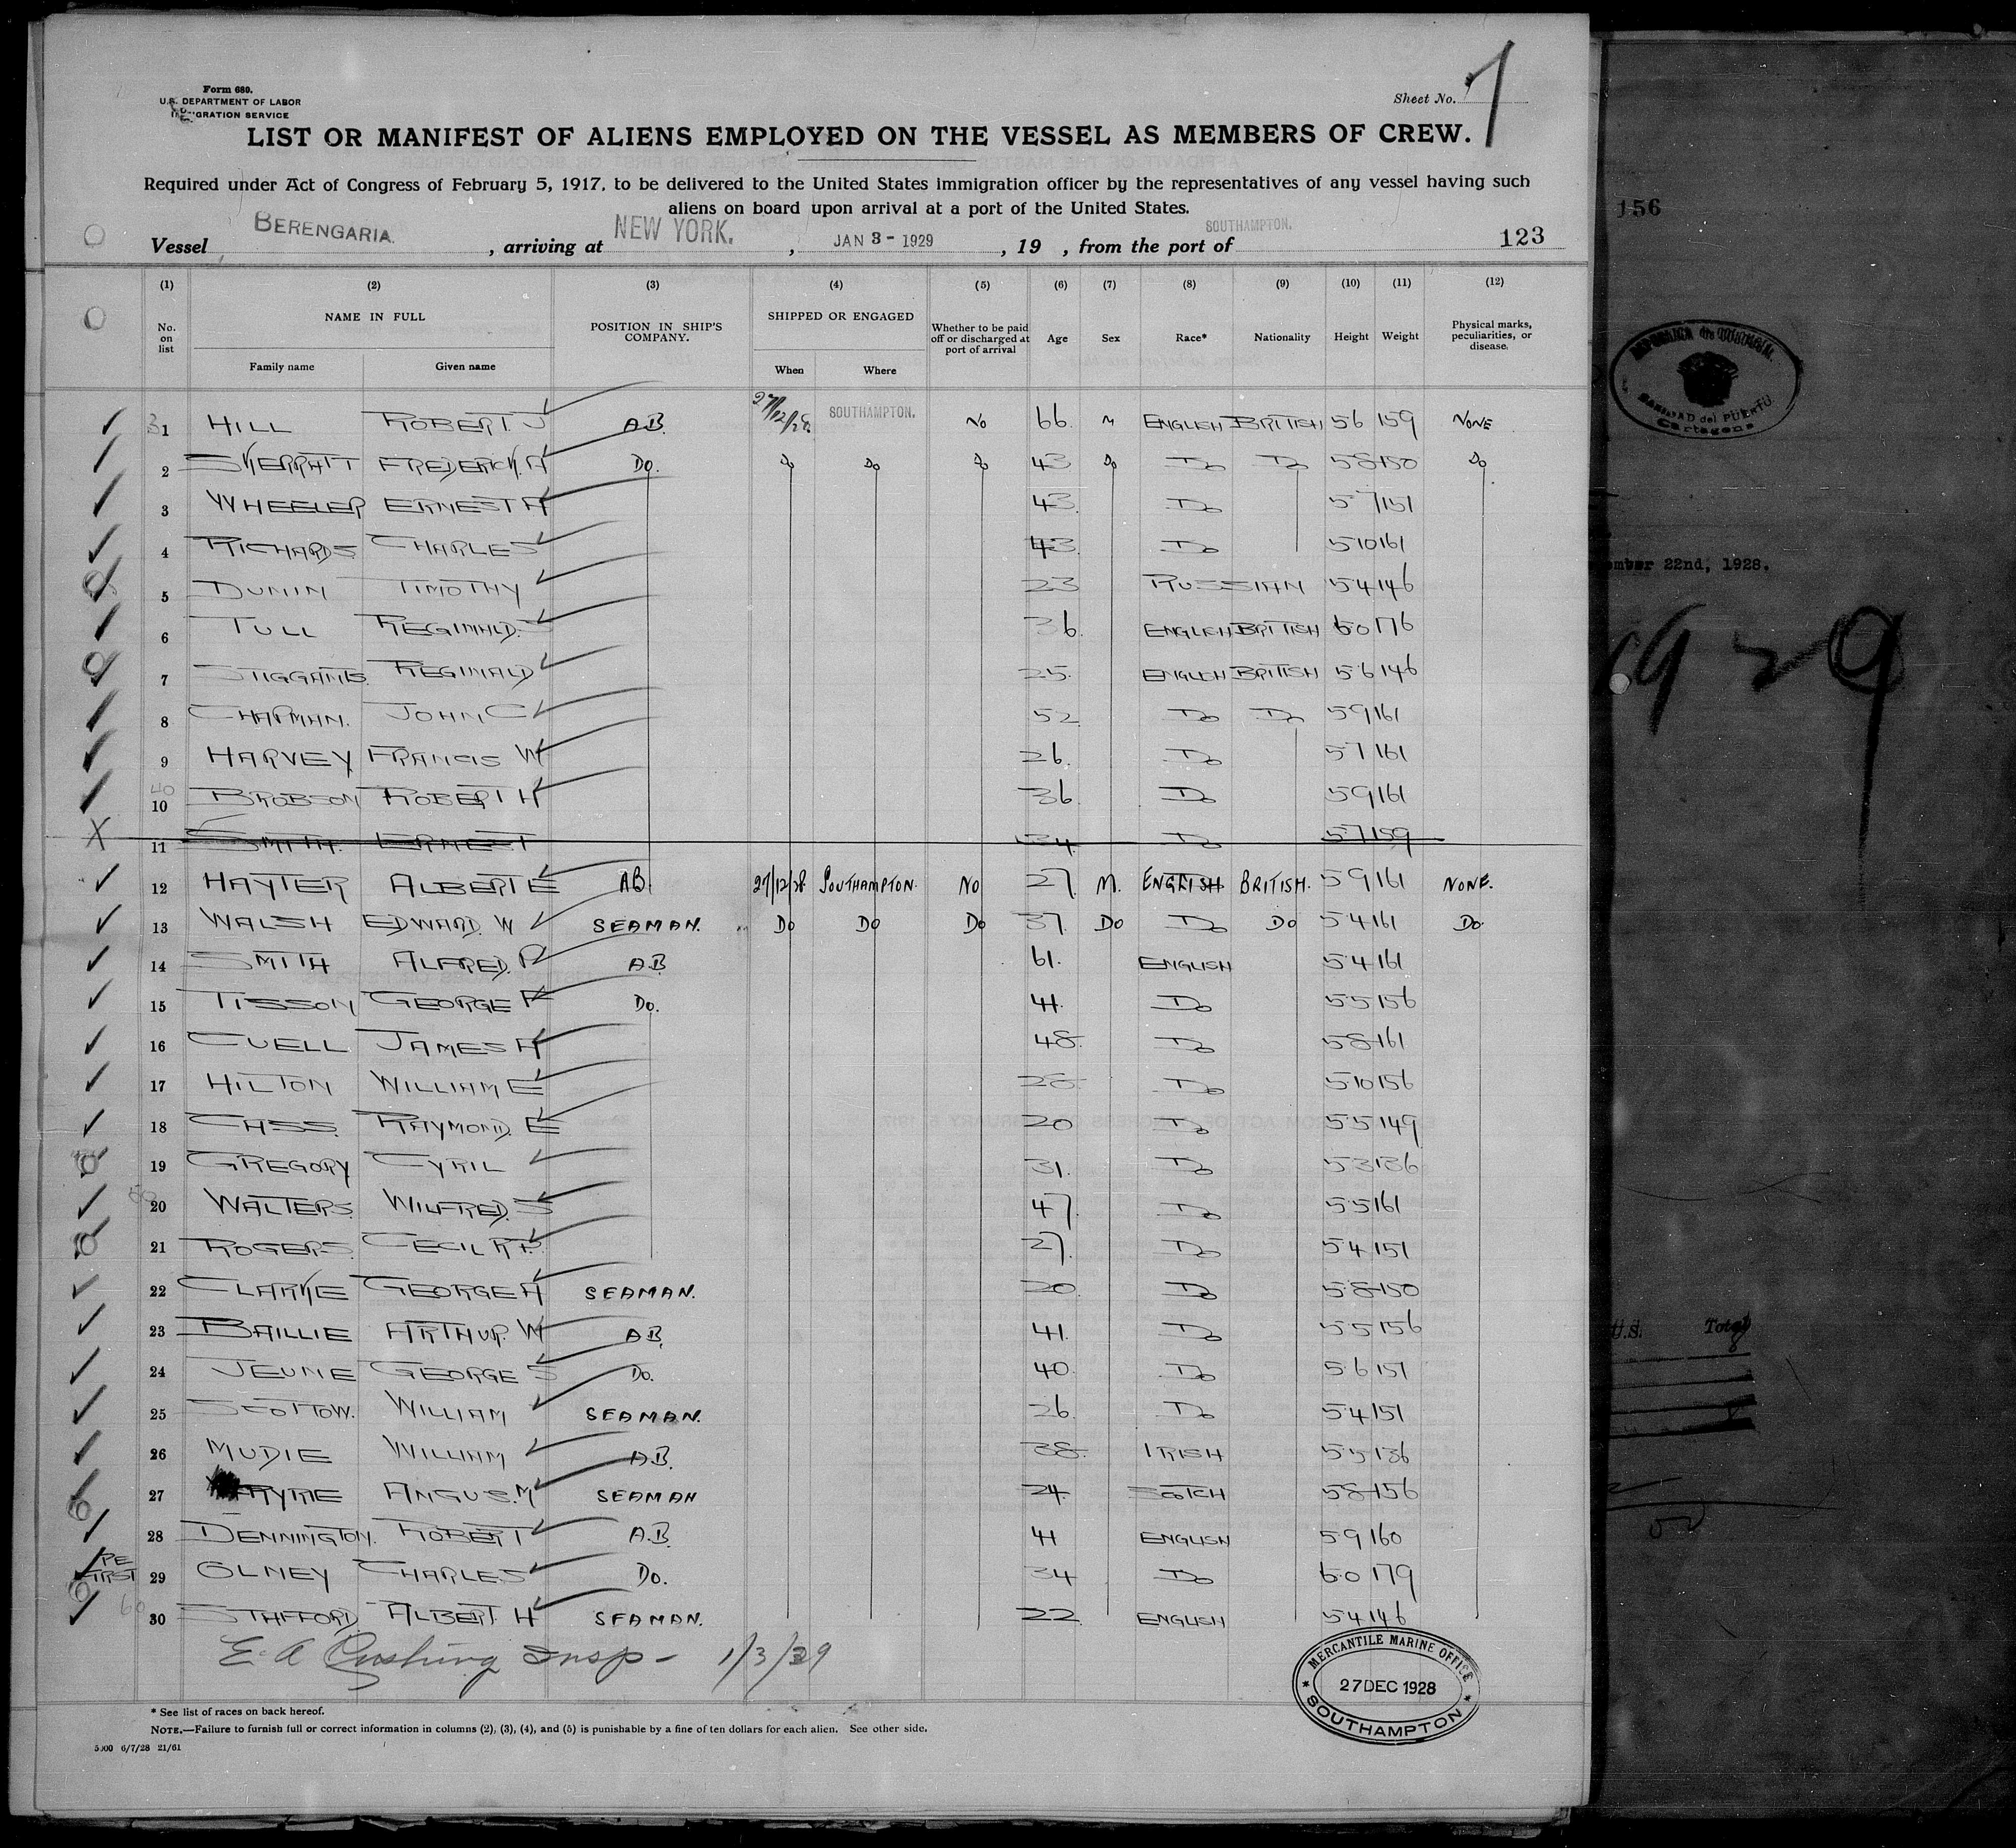 Form 689.
U.S. DEPARTMENT OF LABOR
IMMIGRATION SERVICE
Sheet No. 7
LIST OR MANIFEST OF ALIENS EMPLOYED ON THE VESSEL AS MEMBERS OF CREW.
Required under Act of Congress of February 5, 1917, to be delivered to the United States immigration officer by the representatives of any vessel having such
aliens on board upon arrival at a port of the United States.
Vessel BERENGARIA, arriving at NEW YORK., JAN 3 - 1929, 19 , from the port of SOUTHAMPTON. 123
(1) (2) (3) (4) (5) (6) (7) (8) (9) (10) (11) (12)
No. on list NAME IN FULL POSITION IN SHIP'S COMPANY. SHIPPED OR ENGAGED Whether to be paid off or discharged at port of arrival Age Sex Race* Nationality Height Weight Physical marks, peculiarities, or disease.
Family name Given name When Where
1 HILL ROBERT J A.B. 27/12/28 SOUTHAMPTON. NO 66 M ENGLISH BRITISH 5 6 159 NONE
2 SKERRATT FREDERICK. A Do. Do Do Do 43 Do Do Do 5 8 150 Do
3 WHEELER ERNEST A 43 Do 5 7 151
4 RICHARDS CHARLES 43 Do 5 10 161
5 DUNIN TIMOTHY 23 RUSSIAN 5 4 146
6 TULL REGINALD. S 36 ENGLISH BRITISH 6 0 176
7 STIGGANTS REGINALD 25 ENGLISH BRITISH 5 6 146
8 CHAPMAN. JOHN C 52 Do Do 5 9 161
9 HARVEY FRANCIS W 26 Do 5 7 161
10 BROBSON ROBERT H 36 Do 5 9 161
11 SMITH. ERNEST 34 Do 5 7 159
12 HAYTER ALBERT E AB. 27/12/28 SOUTHAMPTON. NO 27 M. ENGLISH BRITISH. 5 9 161 NONE.
13 WALSH EDWARD. W SEAMAN. DO DO DO 37 DO Do DO 5 4 161 DO.
14 SMITH ALFRED. P A.B 61. ENGLISH 5 4 161
15 TISSON GEORGE F Do. 41. Do 5 5 156
16 CUELL JAMES H 48 Do 5 8 161
17 HILTON WILLIAM E 28 Do 5 10 156
18 CASS. RAYMOND. E 20 Do 5 5 149
19 GREGORY CYRIL 31. Do 5 3 136
20 WALTERS. WILFRED. S 47 Do 5 5 161
21 ROGERS. CECIL R F. 27. Do 5 4 151
22 CLARKE GEORGE A SEAMAN. 20 Do 5 8 150
23 BAILLIE ARTHUR. W A.B. 41. Do 5 5 156
24 JEUNE GEORGE S Do. 40. Do 5 6 151
25 SCOTTOW. WILLIAM SEAMAN. 26. Do 5 4 151
26 MUDIE WILLIAM A.B. 38 IRISH 5 5 136
27 RYRIE ANGUS. M SEAMAN 24. SCOTCH 5 8 156
28 DENNINGTON. ROBERT A.B. 41 ENGLISH 5 9 160
29 OLNEY CHARLES Do. 34 Do 6 0 179
30 STAFFORD ALBERT H SEAMAN. 22 ENGLISH 5 4 146
E. A Cushing Insp - 1/3/29
MERCANTILE MARINE OFFICE
27 DEC 1928
SOUTHAMPTON
* See list of races on back hereof.
NOTE.—Failure to furnish full or correct information in columns (2), (3), (4), and (5) is punishable by a fine of ten dollars for each alien. See other side.
5000 6/7/28 21/61
156
SANIDAD del PUERTO
Cartagena
22nd, 1928.
1929
U.S. Total